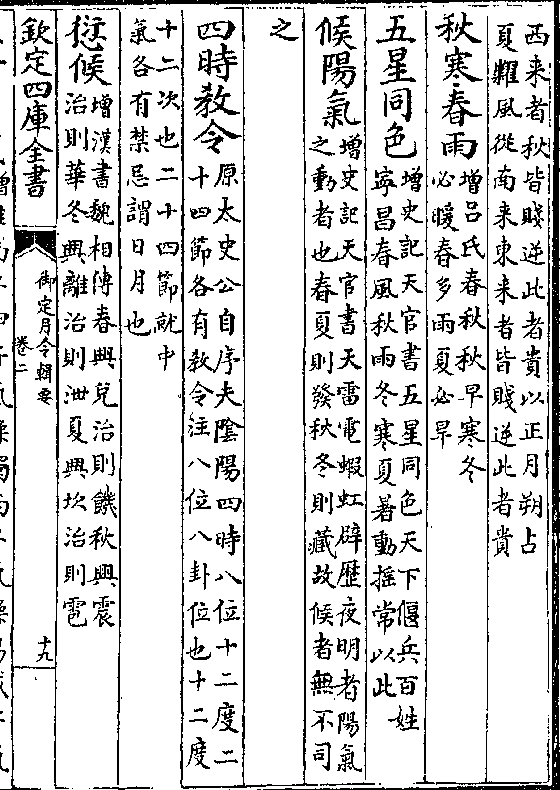 西来者秋皆賤逆此者貴以正月朔占
夏糶風從南来東来者皆賤逆此者貴
秋寒春雨
增吕氏春秋秋早寒冬
必暖春多雨夏必旱
五星同色
增史記天官書五星同色天下偃兵百姓
寧昌春風秋雨冬寒夏暑動摇常以此
候陽氣
增史記天官書天雷電蝦虹辟歴夜明者陽氣
之動者也春夏則發秋冬則藏故候者無不司
之
四時教令
原太史公自序夫陰陽四時八位十二度二
十四節各有教令注八位八卦位也十二度
十二次也二十四節就中
氣各有禁忌謂日月也
愆候
增漢書魏相傳春興兌治則饑秋興震
治則華冬興離治則泄夏興坎治則雹
欽定四庫全書
御定月令輯要
卷二
十九